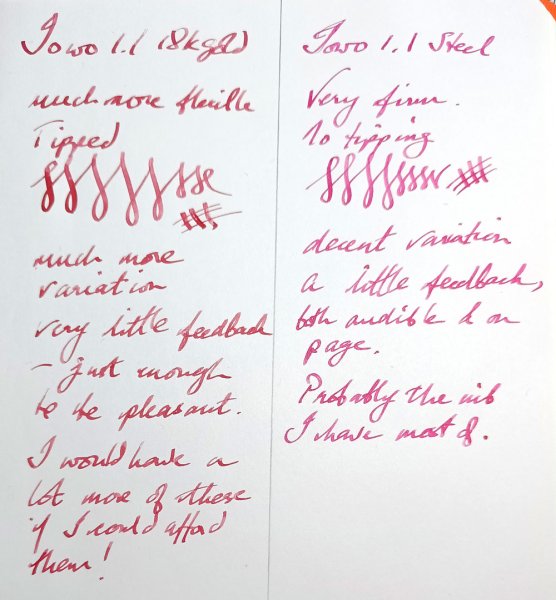 Jowo 1.1 18k gold
much more flexible
Tipped
much more
variation
very little feedback
– just enough
to be pleasant.
I would have a
lot more of these
if I could afford
them!
Jowo 1.1 Steel
Very firm.
No tipping
decent variation
a little feedback,
both audible & on
page.
Probably the nib
I have most of.